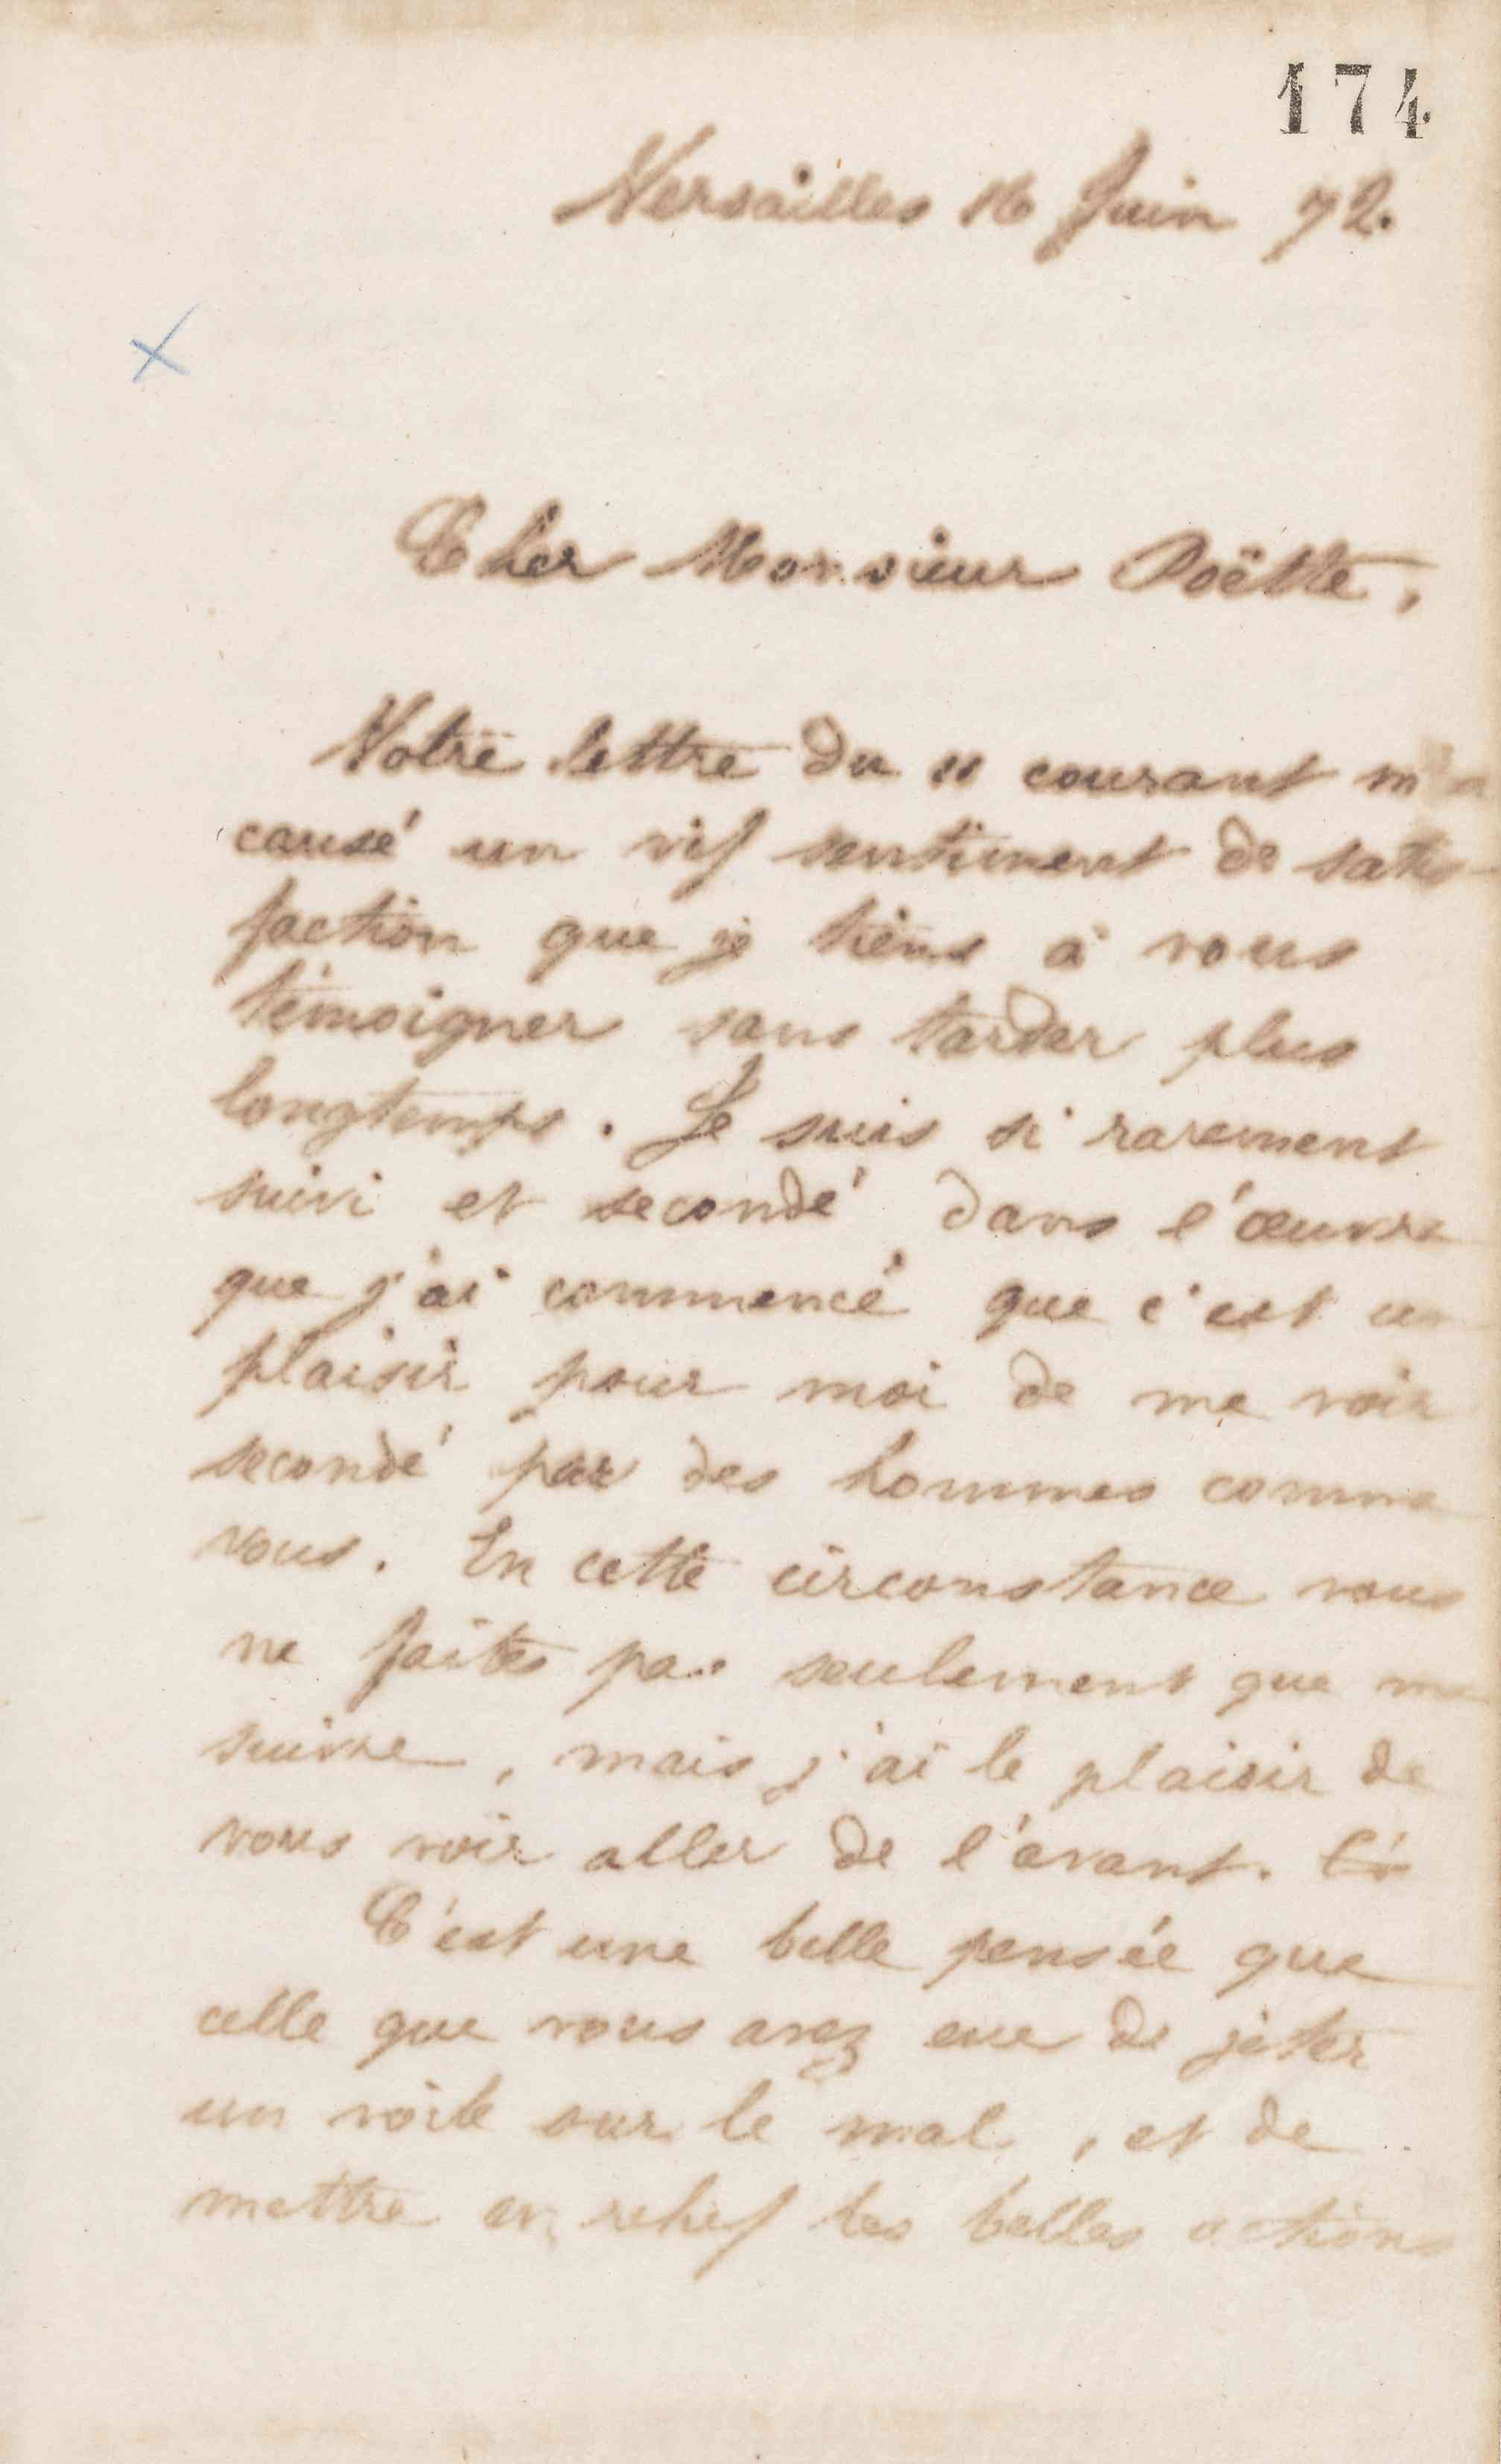 174
Versailles 16 Juin 72.
Cher Monsieur Poëtte,
Votre lettre du 11 courant m'a
causé un vif sentiment de satis-
faction que je tiens à vous
témoigner sans tarder plus
longtemps. Je suis si rarement
suivi et secondé dans l'œuvre
que j'ai commencé que c'est un
plaisir pour moi de me voir
secondé par des hommes comme
vous. En cette circonstance vous
ne faites pas seulement que me
suivre, mais j'ai le plaisir de
vous voir aller de l'avant.
C'est une belle pensée que
celle que vous avez eue de jeter
un voile sur le mal, et de
mettre en relief les belles actions